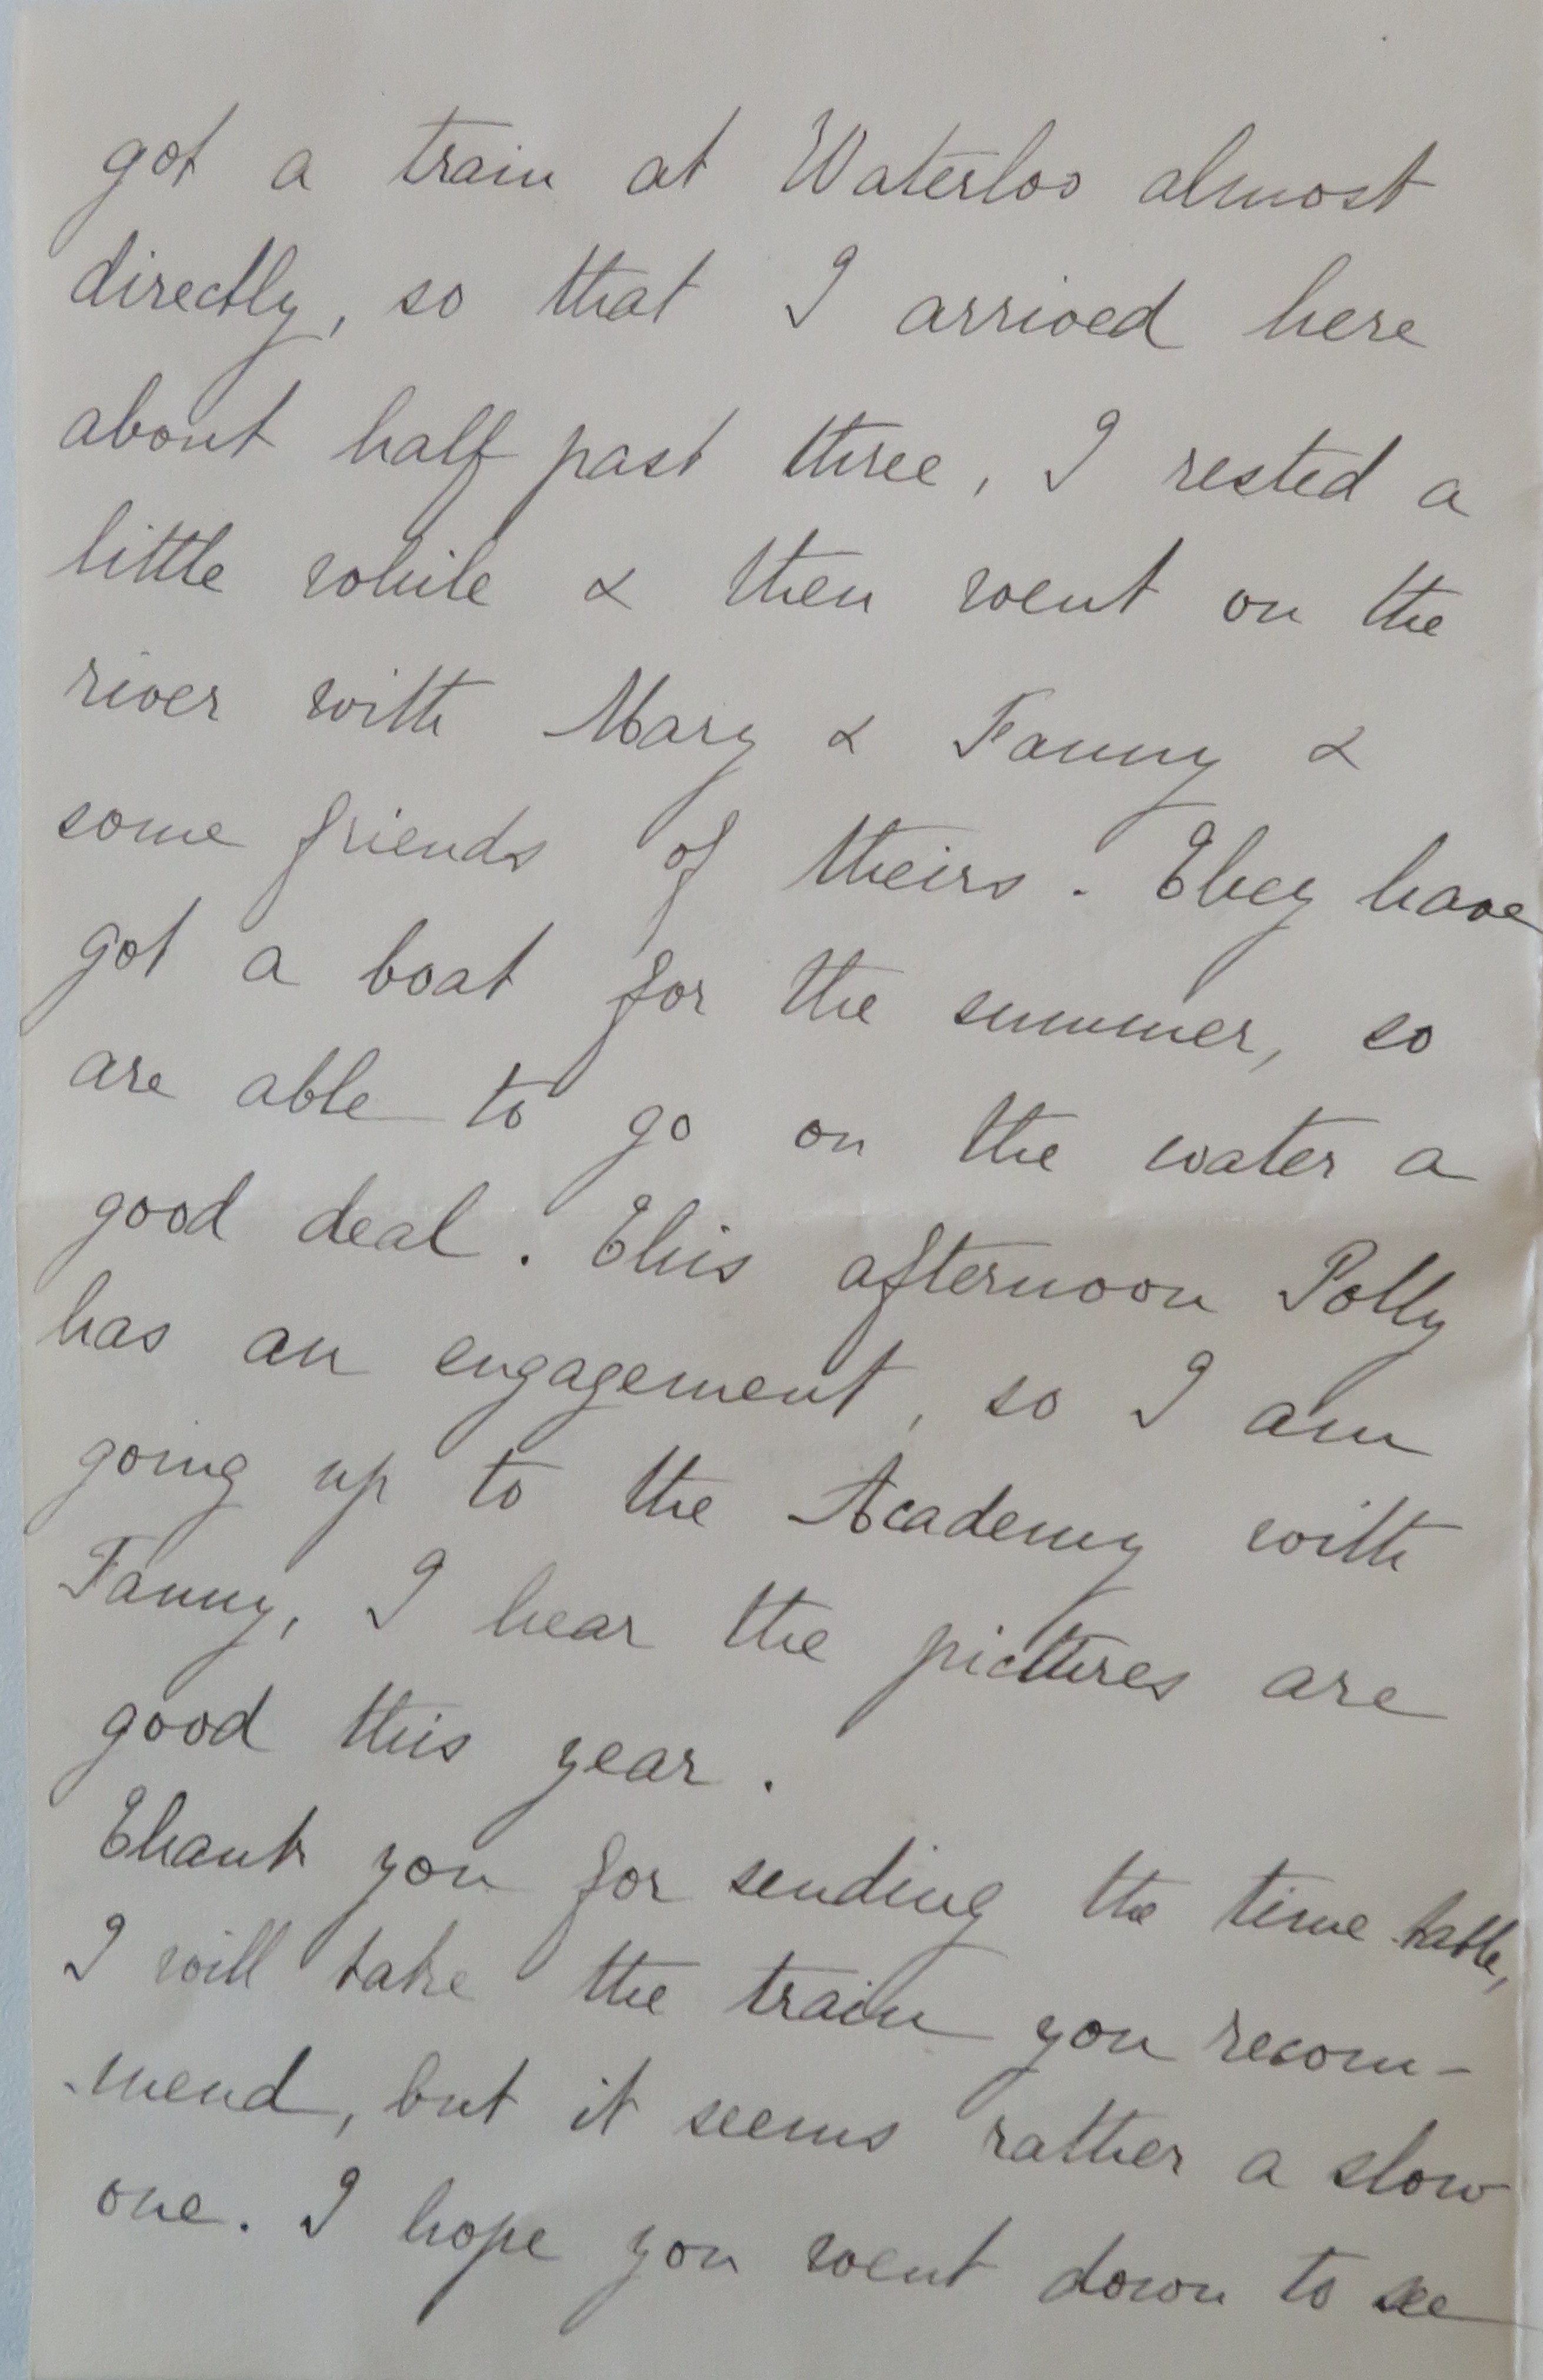 got a train at Waterloo almost
directly, so that I arrived here
about half past three, I rested a
little while & then went on the
river with Mary & Fanny &
some friends of theirs. They have
got a boat for the summer, so
are able to go on the water a
good deal. This afternoon Polly
has an engagement, so I am
going up to the Academy with
Fanny, I hear the pictures are
good this year.
Thank you for sending the time table,
I will take the train you recom-
-mend, but it seems rather a slow
one. I hope you went down to see